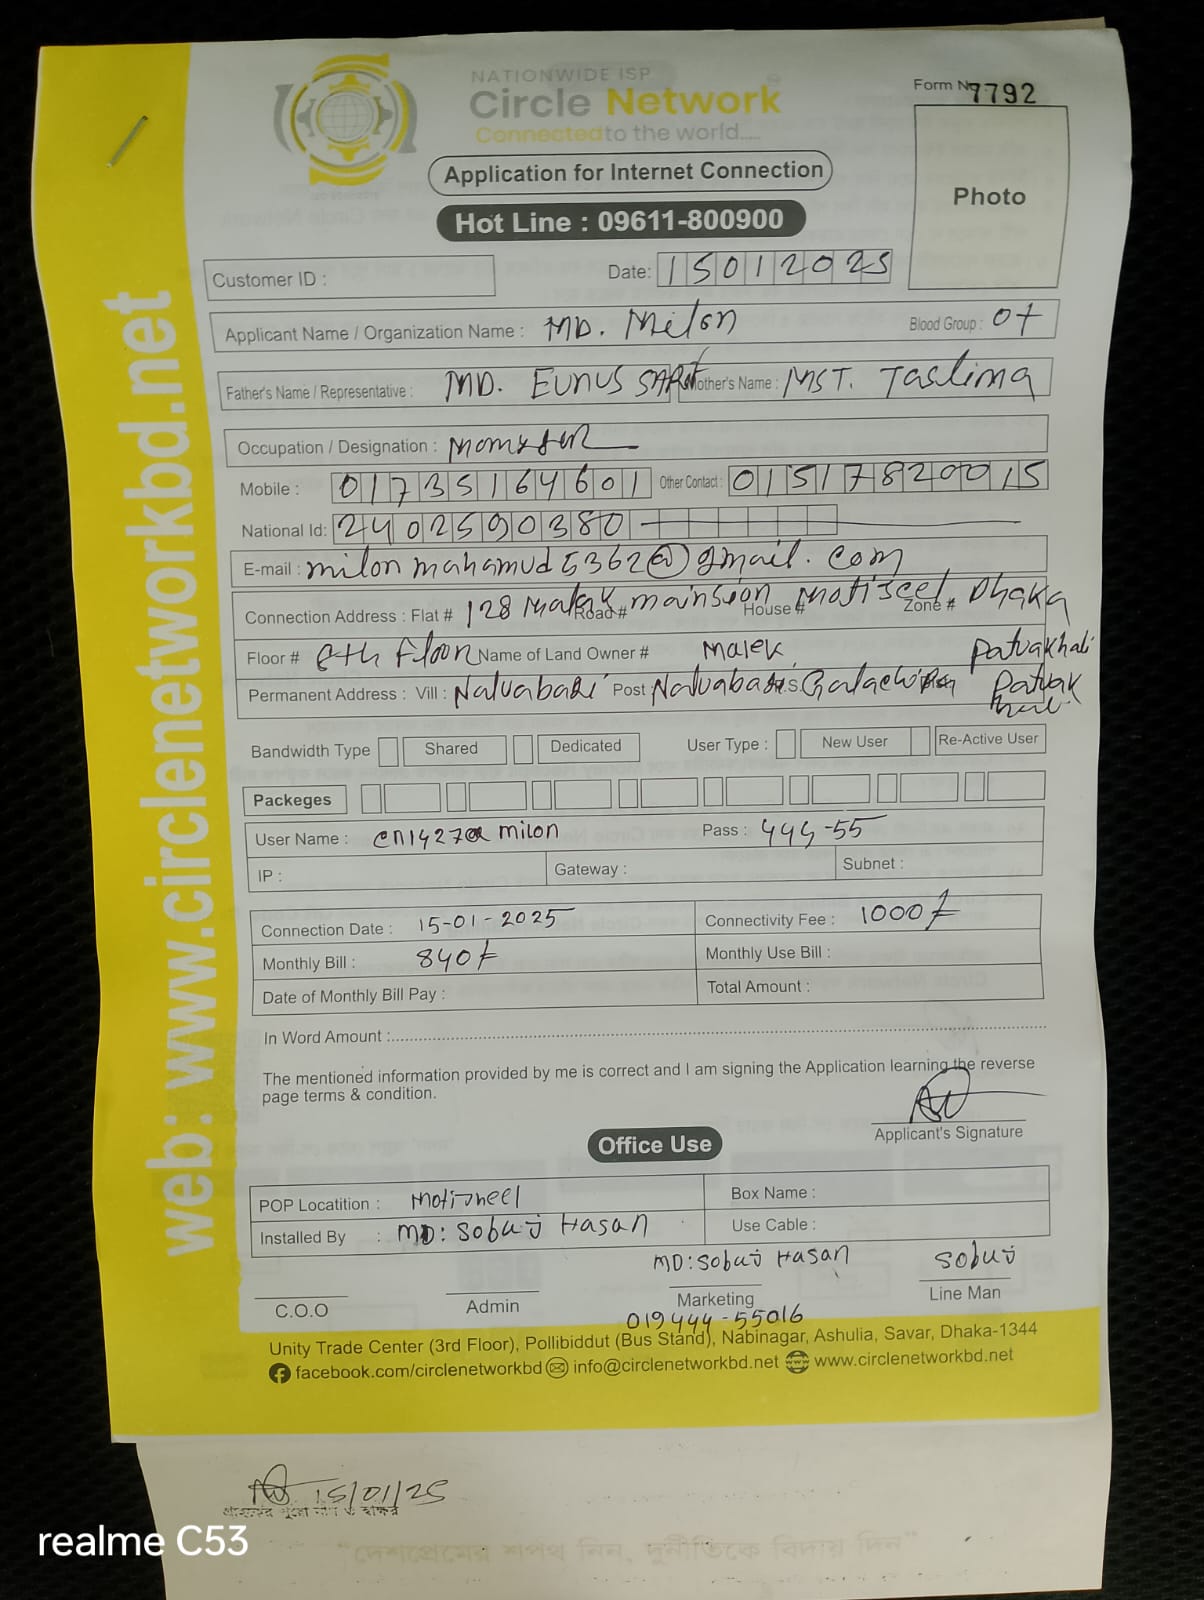 NATIONWIDE ISP
Circle Network
Connected to the world.....
Form No 7792
Application for Internet Connection
Hot Line : 09611-800900
Photo
Customer ID :
Date: 15012025
Applicant Name / Organization Name : MD. Milon Blood Group : O+
Father's Name / Representative : MD. EUNUS Mother's Name : MST. Taslima
Occupation / Designation :
Mobile : 01735164601 Other Contact : 01517820015
National Id: 2402590380
E-mail : milonmahamud5362@gmail.com
Connection Address : Flat # 128 Malek Road # mainsion House # Motijeel, Zone # Dhaka
Floor # 8th Floor Name of Land Owner # Malek Patuakhali
Permanent Address : Vill : Naluabari Post Naluabari P.S. Galachipa Patuakhali
Bandwidth Type Shared Dedicated User Type : New User Re-Active User
Packeges
User Name : milon Pass :
IP : Gateway : Subnet :
Connection Date : 15-01-2025 Connectivity Fee : 1000/-
Monthly Bill : 840/- Monthly Use Bill :
Date of Monthly Bill Pay : Total Amount :
In Word Amount :
The mentioned information provided by me is correct and I am signing the Application learning the reverse
page terms & condition.
Applicant's Signature
Office Use
POP Locatition : Motijheel Box Name :
Installed By : MD: Sobuj Hasan Use Cable :
MD: Sobuj Hasan Sobuj
C.O.O Admin Marketing Line Man
019444-55016
Unity Trade Center (3rd Floor), Pollibiddut (Bus Stand), Nabinagar, Ashulia, Savar, Dhaka-1344
facebook.com/circlenetworkbd info@circlenetworkbd.net www.circlenetworkbd.net
web: www.circlenetworkbd.net
15/01/25
"দেশপ্রেমের শপথ নিন, দুর্নীতিকে বিদায় দিন"
realme C53